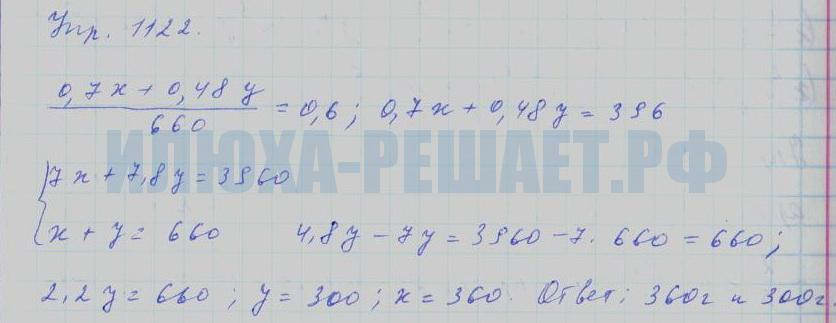 Упр. 1122.
(0,7x + 0,48y)/660 = 0,6; 0,7x + 0,48y = 396
ИЛЮХА-РЕШАЕТ.РФ
{7x + 7,8y = 3960
x + y = 660 4,8y - 7y = 3960 - 7. 660 = 660;
2,2y = 660; y = 300; x = 360. Ответ: 360г и 300г.